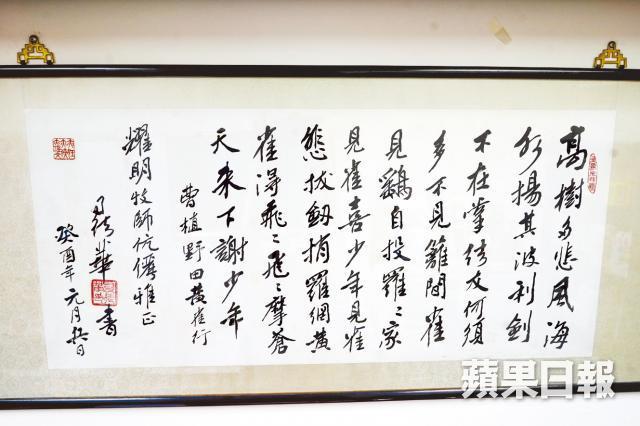 高樹多悲風海
水揚其波利劍
不在掌結友何須
多不見籬間雀
見鷄自投羅〻家
見雀喜少年見雀
悲拔劍捎羅網黃
雀得飛〻飛〻摩蒼
天來下謝少年
曹植野田黃雀行
耀明牧師伉儷雅正
司徒華書
癸酉年元月日
蘋果日報